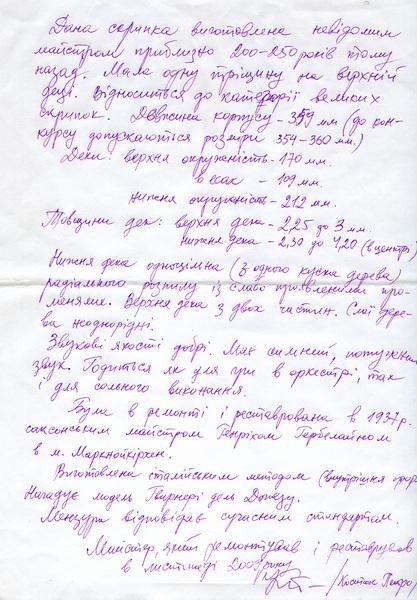 Дана скрипка виготовлена невідомим
майстром приблизно 200-250 років тому
назад. Мала одну тріщину на верхній
деці. Відноситься до категорії великих
скрипок. Довжина корпусу - 359 мм (до кон-
курсу допускаються розміри 354-360 мм.)
Деки: верхня окружність - 170 мм.
в есах - 109 мм.
нижня окружність - 212 мм.
Товщини дек: верхня дека - 2,25 до 3 мм.
нижня дека - 2,30 до 4,20 (в центрі)
Нижня дека одноцільна (з одного куска дерева)
радіального розпилу із слабо проявленими про-
менями. Верхня дека з двох частин. Слої дере-
ва неоднорідні.
Звукові якості добрі. Має сильний, потужний
звук. Годиться як для гри в оркестрі, так
і для сольного виконання.
Була в ремонті і реставрована в 1937р.
саксонським майстром Генріхом Гербелайном
в м. Маркнойкірхен.
Виготовлена італійським методом (внутрішня
Нагадує модель Гварнері дель Джезу.
Мензура відповідає сучасним стандартам.
Майстер, який ремонтував і реставрував
в листопаді 2009 року
/Костюк Петро/